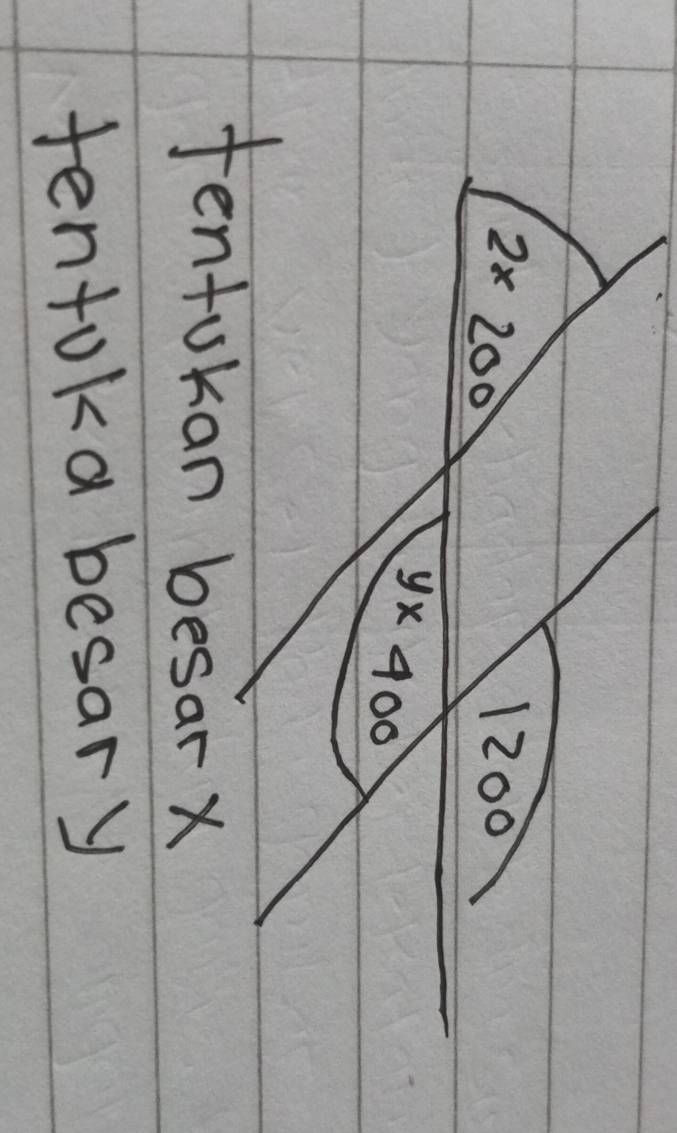 2x 200
1200
yx 400
Tentukan besar x
Tentuka besar y